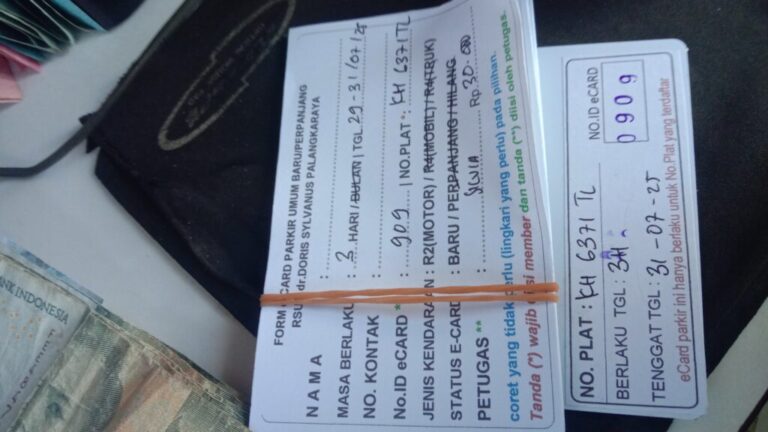 FORM eCARD PARKIR UMUM BARU/PERPANJANG
RSUD dr.DORIS SYLVANUS PALANGKARAYA
NAMA :
MASA BERLAKU : 3 HARI / BULAN | TGL. 29 - 31/07/25
NO. KONTAK :
No.ID eCARD * : 909 | NO.PLAT* : KH 6371 TL
JENIS KENDARAAN : R2(MOTOR) / R4(MOBIL) / R4(TRUK)
STATUS E-CARD : BARU / PERPANJANG / HILANG
PETUGAS ** : SILVIA Rp. 30.000
coret yang tidak perlu (lingkari yang perlu) pada pilihan.
Tanda (*) wajib diisi member dan tanda (**) diisi oleh petugas.
NO. PLAT : KH 6371 TL
NO.ID eCARD
0909
BERLAKU TGL : 3H
TENGGAT TGL : 31 - 07 - 25
eCard parkir ini hanya berlaku untuk No.Plat yang terdaftar
BANK INDONESIA